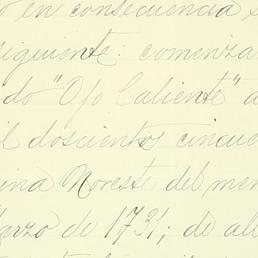 o en consecuencia s
siguiente: comenzan
do "Ojo Caliente" a
il doscientos cincue
uina Noreste del men
Marzo de 1731; de all